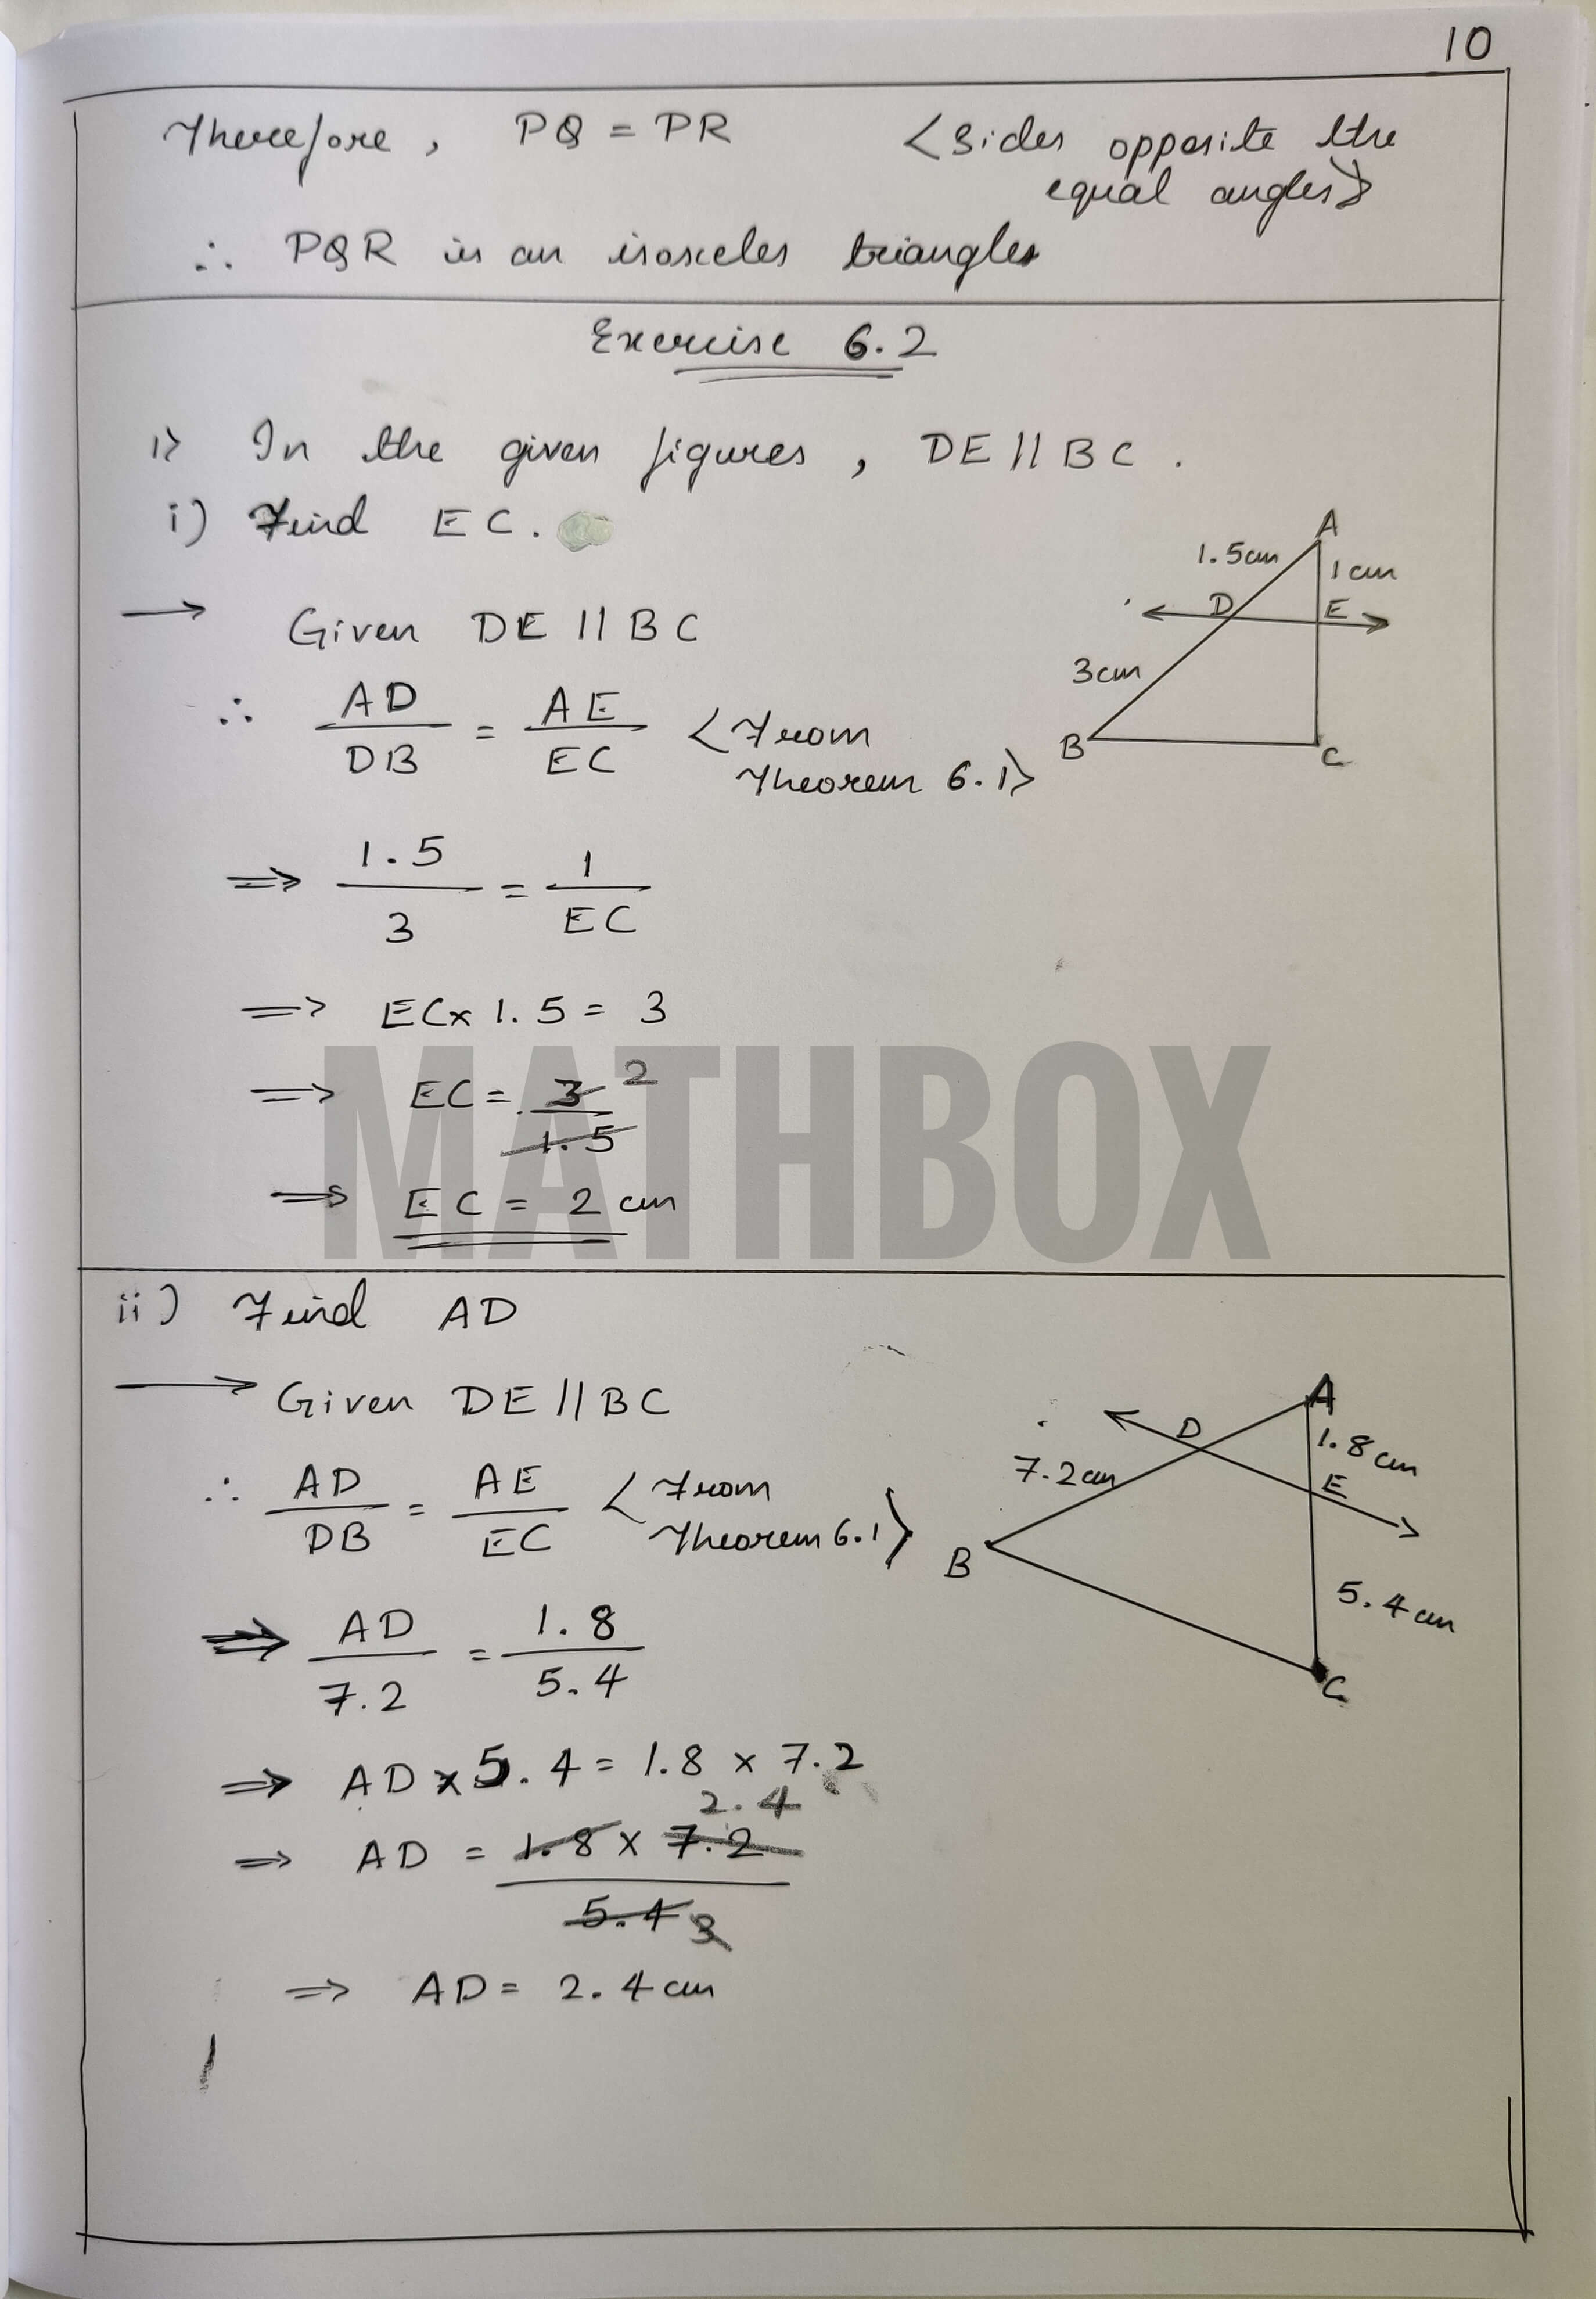 10
Therefore, PQ = PR <Sides opposite the
equal angles>
∴ PQR is an isosceles triangles
Exercise 6.2
1> In the given figures, DE || BC.
i) Find EC.
A
1.5cm
1 cm
D
E
3cm
B
C
→ Given DE || BC
∴ AD/DB = AE/EC <From
Theorem 6.1>
⇒ 1.5/3 = 1/EC
⇒ EC × 1.5 = 3
⇒ EC = 3/1.5 2
⇒ EC = 2 cm
MATHBOX
ii) Find AD
→ Given DE || BC
A
D
1.8cm
7.2cm
E
B
5.4cm
C
∴ AD/DB = AE/EC <From
Theorem 6.1>
⇒ AD/7.2 = 1.8/5.4
⇒ AD × 5.4 = 1.8 × 7.2
2.4
⇒ AD = 1.8 × 7.2
5.4 3
⇒ AD = 2.4 cm